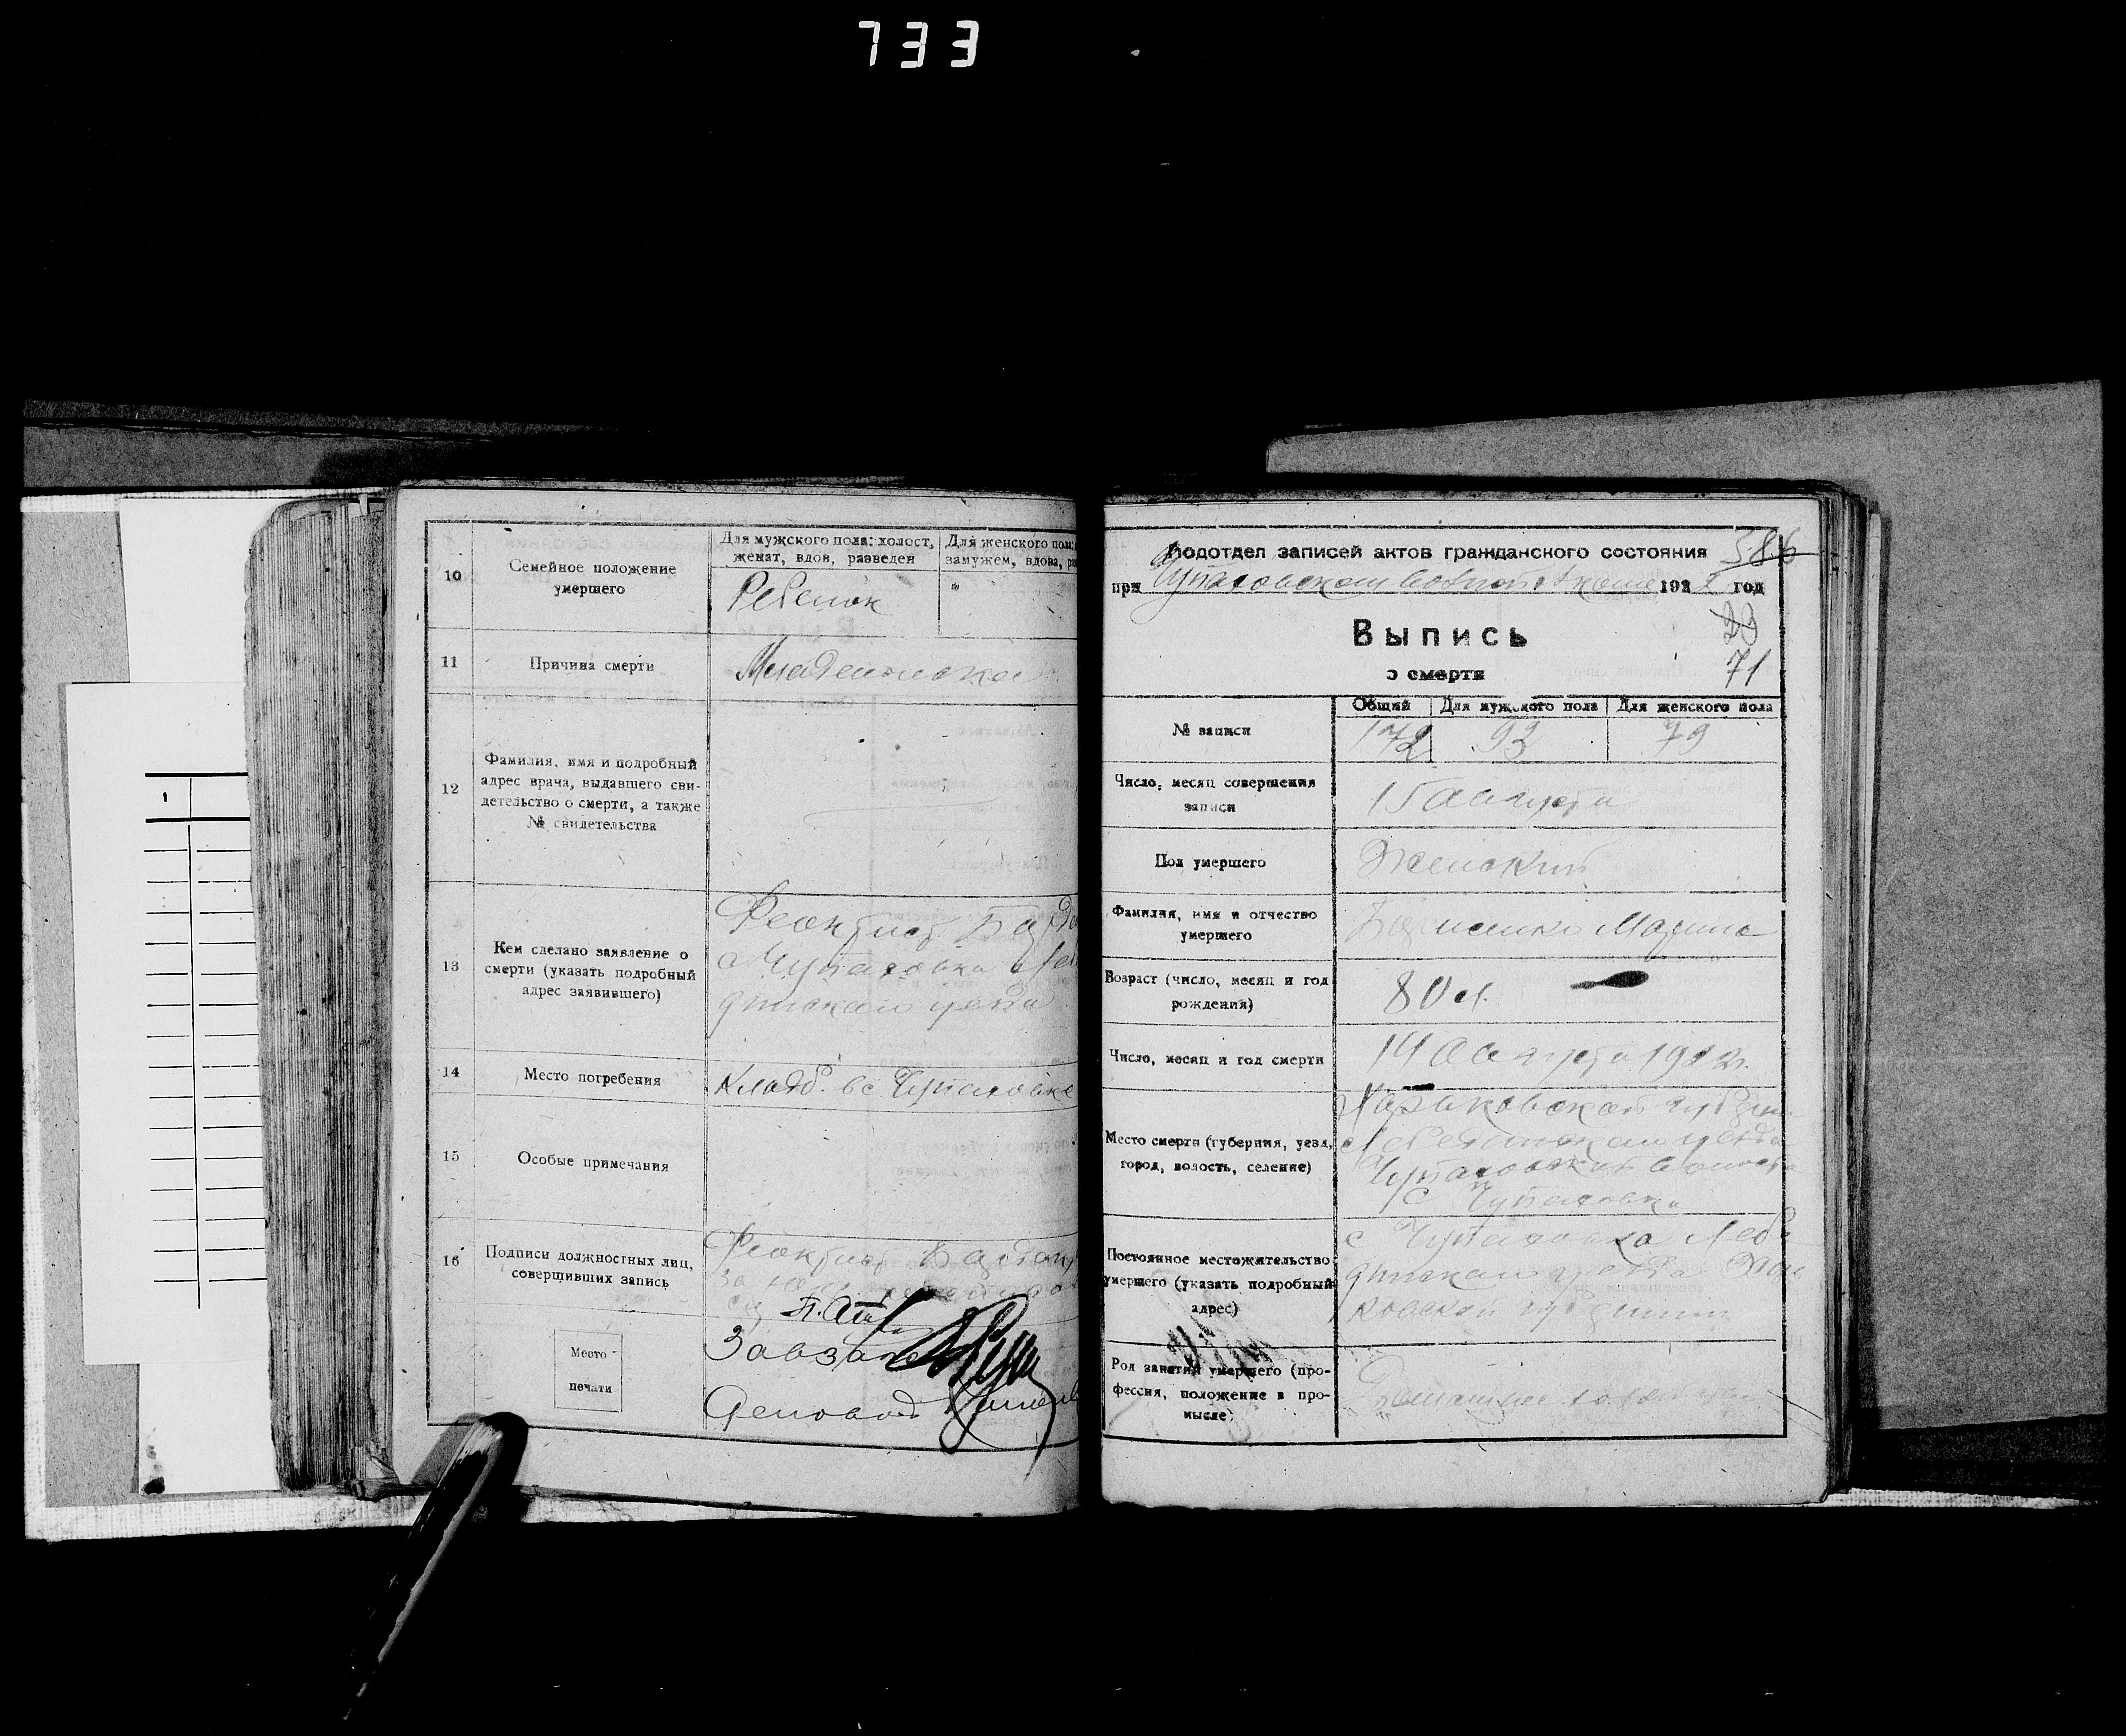 733
10
Семейное положение
умершего
Для мужского пола: холост,
женат, вдов, разведен
Для женского пола:
замужем, вдова, раз
Ребенок
"
11
Причина смерти
Младенческая
12
Фамилия, имя и подробный
адрес врача, выдавшего сви-
детельство о смерти, а также
№ свидетельства
13
Кем сделано заявление о
смерти (указать подробный
адрес заявившего)
Феоктист
с Чупаховка Лебе
динского уезда
14
Место погребения
Кладб. в с Чупаховке
15
Особые примечания
16
Подписи должностных лиц,
совершивших запись
Феоктист
Завзапс
Деловод
Место
печати
1
Подотдел записей актов гражданского состояния
386
при Чупаховском 192 2 год
Выпись
о смерти
71
№ записи
Общий
Для мужского пола
Для женского пола
172
93
79
Число, месяц совершения
записи
15 Августа
Пол умершего
Женский
Фамилия, имя и отчество
умершего
Марина
Возраст (число, месяц и год
рождения)
80 л.
Число, месяц и год смерти
14 Августа 1922 г.
Место смерти (губерния, уезд,
город, волость, селение)
Харьковской губерн.
Лебединского уезда
Чупаховской волости
с Чупаховка
Постоянное местожительство
умершего (указать подробный
адрес)
с Чупаховка Лебе
динского уезда Харь
ковской губернии
Род занятий умершего (про-
фессия, положение в про-
мысле)
Домашнее